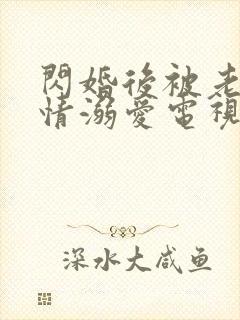 閃婚後被老
情溺愛電視
深水大咸鱼